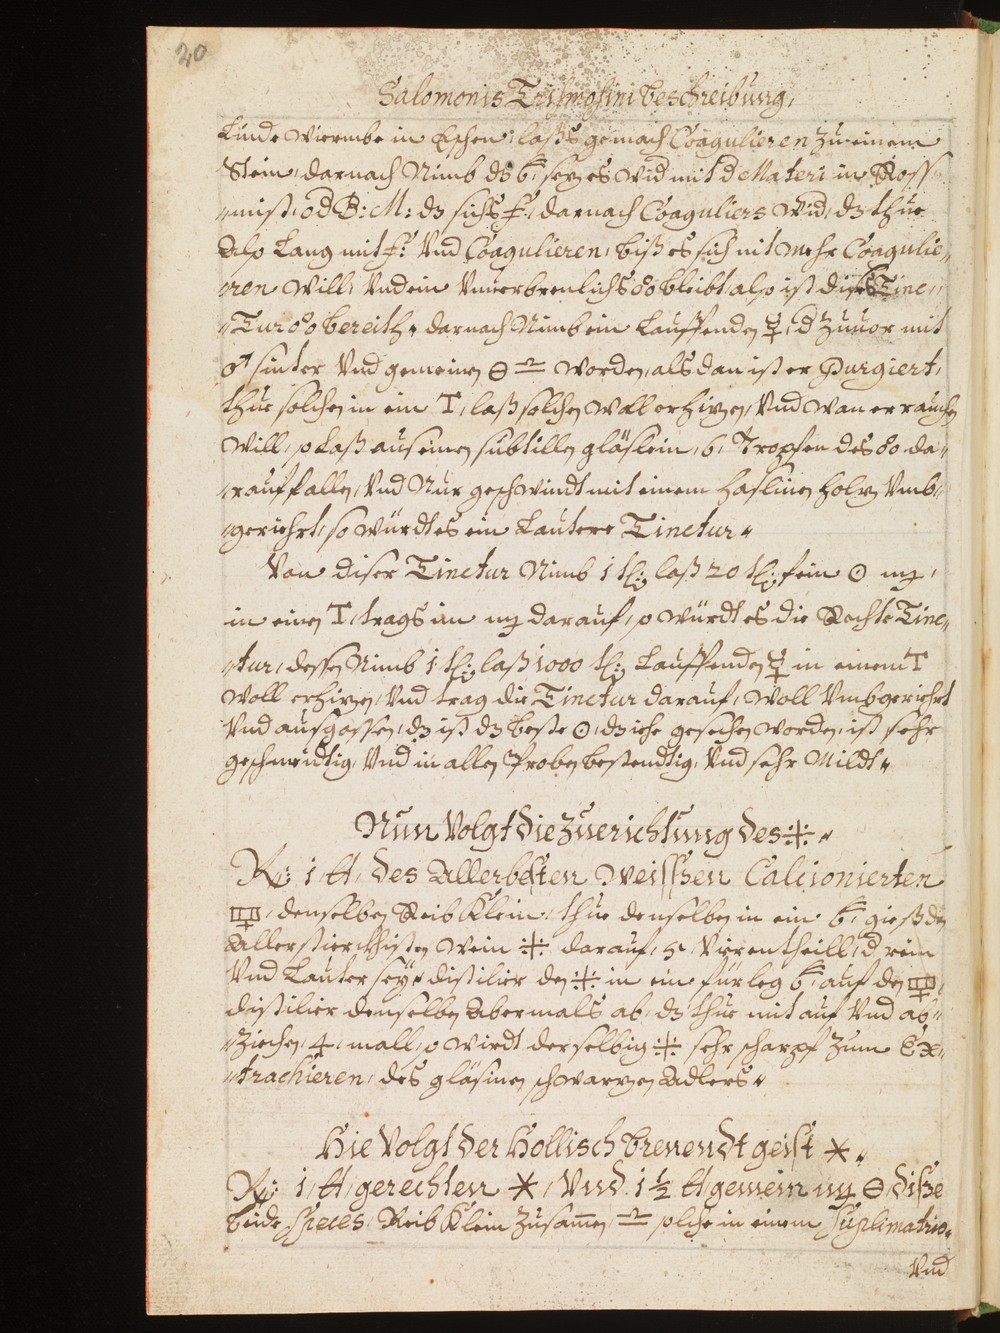 20
Salomonis Trismosini beschreibung,
Linde wermbe in Eschen, laß gemach Coagulieren zu einem
Stein, darnach Nimb ds seze es wid mit d Materi in Ross„
„mist, od B: M: dz sichs darnach Coaguliers wid, dz thue
Also Lang mit Vnd Coagulieren, biß es sich nit mehr Coagulie„
„ren will, Vnd ein Vnuerbrenlichs bleibt, also ist dises Tinc„
„Tur bereith„ darnach Nimb ein Lauffenden ☿, d zuuor mit
♂ sinter Vnd gemeinen worden, als dan ist er Purgiert,
thue solchen in ein T, laß solchen woll erhizen, Vnd wan er rauchen
will, so Laß aus einem subtillen gläslein, 6, Tropfen des da„
„rauf fallen, Vnd Nur geschwindt mit einem haslinen holz Vmb„
„geriehrt, so würdt es ein Lautere Tinctur„
Von diser Tinctur Nimb 1 tl: laß 20 tl: fein ☉
in einen T, trags im darauf, so würdt es die Rechte Tinc„
„tur, dessen Nimb 1 tl: laß 1000 tl: Lauffenden ☿ in einem T
woll erhizen, Vnd trag die Tinctur darauf, woll Vmbgeriehrt
Vnd ausgossen, dz ist dz beste ☉, dz iehe gesechen worden, ist sehr
geschmeidtig, Vnd in allen Proben bestendtig, Vnd sehr Mildt„
Nun Volgt die zuerichtung des
R: 1 ℔, des Allerbesten weissen Calcionierten
denselben Reib Klein, thue denselben in ein gieß den
Aller sterckhisten wein darauf, 5 Vierentheill, d rein
Vnd Lauter seye, distilier den in ein fürleg auf den
distilier denselben Abermals ab, dz thue mit auf Vnd ab„
„ziechen, 4, mall, so wirdt derselbig sehr scharpf zum Ex„
„trachieren, des gläsinen schwarzen Adlers„
Hie Volgt der Hollisch brenendt geist
R: 1, ℔, gerechten Vnd 1 ½ ℔ gemein dise
beide Species, Reib Klein zusamen solche in einem Suplimatrio„
Vnd